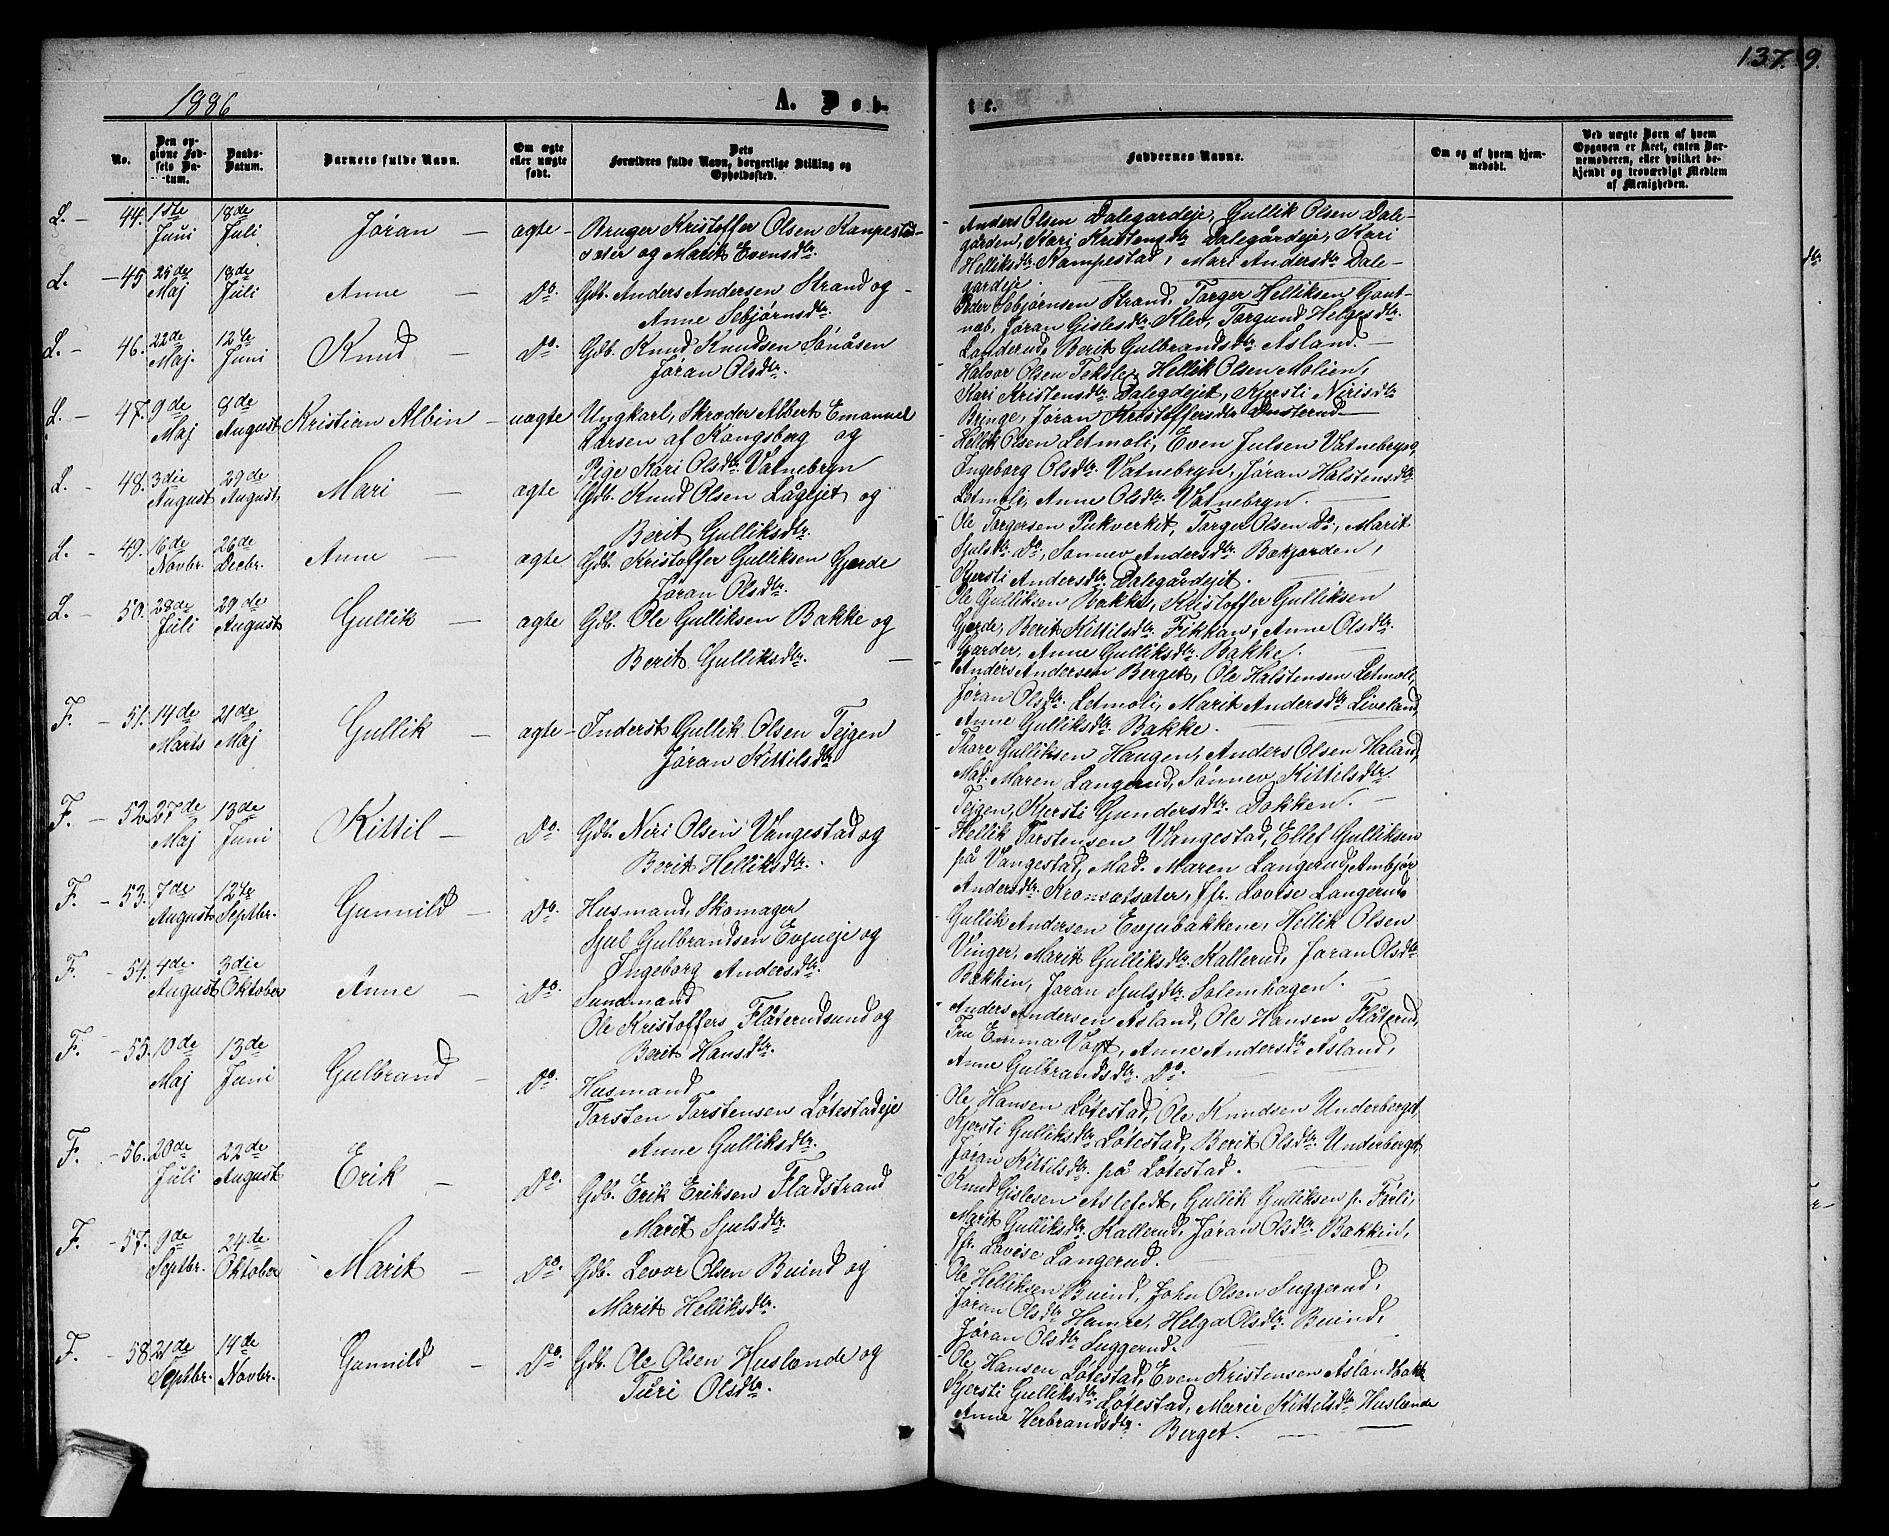 1886
A. Døb-
te.
137.
9.
No.
Den opgivne Fødsels Datum.
Daabs-Datum.
Barnets fulde Navn.
Om ægte eller uægte født.
Dets Forældres fulde Navn, borgerlige Stilling og Opholdssted.
Faddernes Navne.
Om og af hvem hjemmedøbt.
Ved uægte Børn af hvem Opgaven er skeet, enten Barnemoderen, eller hvilket bekjendt og troværdigt Medlem af Menigheden.
L. - 44. 1ste Juni 18de Juli Jøran - ægte - Bruger Kristoffer Olsen Kampestad-
sæter og Marit Evensdtr.
Anders Olsen Dalegardeje, Gullik Olsen Dale-
garden, Kari Kristensdtr Dalegårdeje, Kari
Helliksdtr Kampestad, Mari Andersdtr Dale-
gardeje.
L. - 45. 25de Maj 18de Juli Anne - Do. Gdb. Anders Andersen Strand og -
Anne Sebjørnsdtr.
Peder Sebjørnsen Strand, Targer Helliksen Gout-
næb, Jøran Gislesdtr Klev, Torgund Helgesdtr.
Landerud, Berit Gulbrandsdtr Åsland. -
L. - 46. 22de Maj. 12te Juni Knud - Do. Gdb. Knud Knudsen Sønåsen
Jøran Olsdtr.
Halvor Olsen Teksle, Hellik Olsen Molien,
Kari Kristensdtr. Dalegdejet, Kjersti Nirisdtr
Bringe, Jøran Kristoffersdtr Dusterud -
L. - 47. 9de Maj 8de August Kristian Albin - uægte Ungkarl, Skræder Albert Emanuel
Larsen af Kongsberg og
Pige Kari Olsdtr. Vatnebryn
Hellik Olsen Letmoli, Even Julsen Vatnebryn,
Ingeborg Olsdtr. Vatnebryn, Jøran Halstensdtr.
Letmoli, Anne Olsdtr. Vatnebryn.
L. - 48. 3die August 29de August, Mari - ægte Gdb. Knud Olsen Lågejet og
Berit Gulliksdtr.
Ole Torgersen Pukverket, Targer Olsen Do., Marit
Sjulsdtr. Do, Sonnev Andersdtr. Bekjorden,
Kjersti Andersdtr. Dalegårdejet.
L. - 49. 16de Novbr. 26de Decbr. Anne - ægte Gdb. Kristoffer Gulliksen Gjerde
Jøran Olsdtr.
Ole Gulliksen Bakke, Kristoffer Gulliksen
Gjerde, Berit Kittilsdtr. Fikkan, Anne Olsdtr.
Garder, Anne Gulliksdtr. Bakke.
L. - 50. 28de Juli 29de August Gullik - ægte Gdb. Ole Gulliksen Bakke og
Berit Gulliksdtr. -
Anders Andersen Berget, Ole Halstensen Letmoli,
Jøran Olsdtr. Letmoli, Marit Andersdtr Liveland,
Anne Gulliksdtr. Bakke.
F. - 51. 14de Marts 21de Maj Gullik - ægte - Inderst Gullik Olsen Tejgen
Jøran Kittilsdtr
Thore Gulliksen Haugen, Anders Olsen Haland,
Mad. Maren Langerud, Sønnev Kittelsdtr.
Teigen, Kjersti Gundersdtr. Dokken. -
F. - 52. 27de Maj 13de Juni Kittil - Do. Gdb. Niri Olsen Vangestad og
Berit Helliksdtr.
Hellik Torstensen Vangestad, Ellef Gulliksen
på Vangestad, Mad. Maren Langerud, Ambjør
Andersdtr. Kronsætsæter, Jfr. Lovise Langerud
F. - 53. 7de August 12te Septbr. Gunnild - Do. Husmand, Skomager
Sjul Gulbrandsen Evjueje og
Ingeborg Andersdtr.
Gullik Andersen Evjubakkene, Hellik Olsen
Vinger, Marit Gulliksdtr. Kallerud, Jøran Olsdtr.
Bakkin, Jøran Sjulsdtr. Solemhagen.
F. - 54. 4de August 3die Oktober Anne - Do. Sundmand
Ole Kristoffers. Flåterudsund og
Berit Hansdtr.
Anders Andersen Åsland, Ole Hansen Flåterud,
Fru Emma Vogt, Anne Andersdtr. Åsland,
Anne Gulbrandsdtr. Do.
F. - 55. 10de Maj 13de Juni Gulbrand - Do. Husmand
Torsten Torstensen Løtestadeje
Anne Gulliksdtr.
Ole Hansen Løtestad, Ole Knudsen Underberget,
Kjersti Gulliksdtr. Løtestad, Berit Olsdtr. Underberget,
Jøran Kittilsdtr. på Løtestad.
F. - 56. 20de Juli 22de August Erik - Do. Gdb. Erik Eriksen Fladstrand
Marit Sjulsdtr.
Knud Gislesen Aslefedt, Gullik Gulliksen p. Førli,
Marit Gulliksdtr. Kallerud, Jøran Olsdtr. Bakkin,
Jfr. Lovise Langerud.
F. - 57. 9de Septbr. 24de Oktober - Marit - Do. Gdb. Levor Olsen Buind og
Marit Helliksdtr.
Ole Helliksen Buind, John Olsen Suggerud,
Jøran Olsdtr Hamre, Helga Olsdtr. Buind,
Jøran Olsdtr Suggerud.
F. - 58. 21de Septbr. 14de Novbr. Gunnild - Do. Gdb. Ole Olsen Huslende og
Turi Olsdtr.
Ole Hansen Løtestad, Even Kristensen Åslandbakk
Kjersti Gulliksdtr. Løtestad, Marie Kittilsdtr Huslende
Anne Herbrandsdtr.
Berget. -